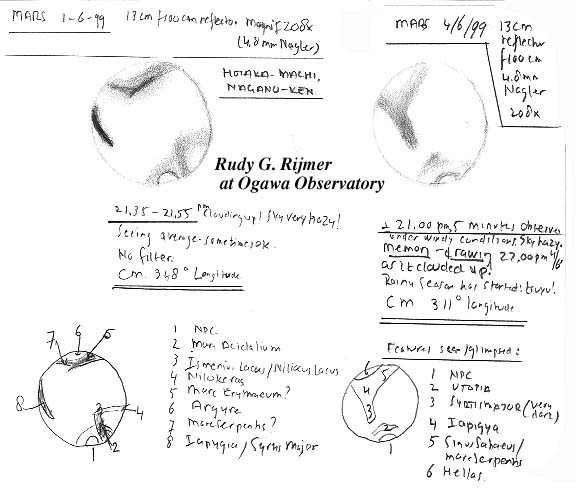 MARS 1-6-99 13cm f100cm reflector. Magnif 208x
(4.8mm Nagler)
HOTAKA-MACHI,
NAGANO-KEN.
MARS 4/6/99
13cm
reflector
f100cm
4.8mm
Nagler
208x
Rudy G. Rijmer
at Ogawa Observatory
21.35-21.55 pm Clouding up! Sky very hazy!
Seeing average-sometimes ok.
No filter.
Cm. 348° Longitude
± 21.00 pm, 5 minutes observed
under windy conditions. Sky hazy.
memory-drawing 22.00 pm 4/6
as it clouded up!
Rainy season has started: tsuyu!
CM 311° longitude.
7 6 5
8 3 4
2
1
1 NPC
2 Mare Acidalium
3 Ismenius Lacus/Niliacus Lacus
4 Nilokeras
5 Mare Erythraeum?
6 Argyre
7 Mare Serpentis?
8 Iapygia/Syrtis Major
Features seen/glimpsed:
6 5
4
3
2
1
1 NPC
2 UTOPIA
3 SYRTIS MAJOR (very dark)
4 Iapigya
5 Sinus Sabaeus/
mare Serpentis
6 Hellas.